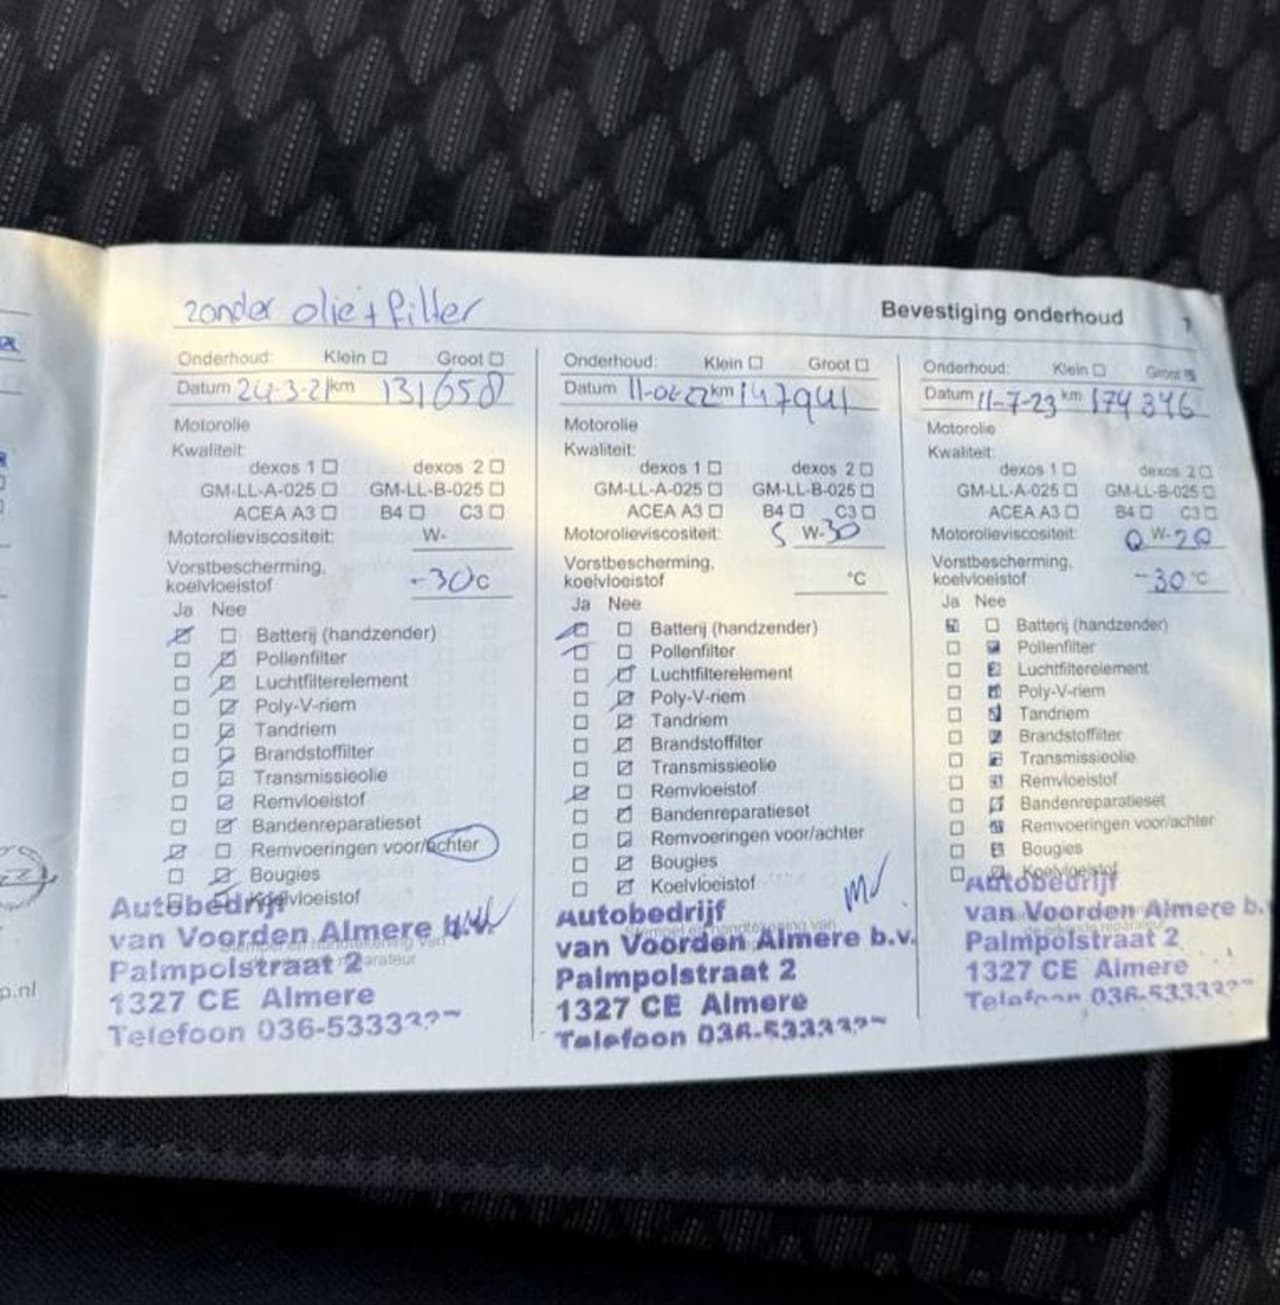 zonder olie + filter
Bevestiging onderhoud
Onderhoud: Klein Groot
Datum 24-3-21 km 131658
Motorolie
Kwaliteit:
dexos 1 dexos 2
GM-LL-A-025 GM-LL-B-025
ACEA A3 B4 C3
Motorolieviscositeit: W-
Vorstbescherming,
koelvloeistof -30°C
Ja Nee
Batterij (handzender)
Pollenfilter
Luchtfilterelement
Poly-V-riem
Tandriem
Brandstoffilter
Transmissieolie
Remvloeistof
Bandenreparatieset
Remvoeringen voor/achter
Bougies
Koelvloeistof
Autobedrijf
van Voorden Almere b.v.
Palmpolstraat 2
1327 CE Almere
Telefoon 036-5333
Onderhoud: Klein Groot
Datum km 147941
Motorolie
Kwaliteit:
dexos 1 dexos 2
GM-LL-A-025 GM-LL-B-025
ACEA A3 B4 C3
Motorolieviscositeit: 5 W-30
Vorstbescherming,
koelvloeistof °C
Ja Nee
Batterij (handzender)
Pollenfilter
Luchtfilterelement
Poly-V-riem
Tandriem
Brandstoffilter
Transmissieolie
Remvloeistof
Bandenreparatieset
Remvoeringen voor/achter
Bougies
Koelvloeistof
Autobedrijf
van Voorden Almere b.v.
Palmpolstraat 2
1327 CE Almere
Telefoon 036-5333
Onderhoud: Klein Groot
Datum 11-7-23 km 174346
Motorolie
Kwaliteit:
dexos 1 dexos 2
GM-LL-A-025 GM-LL-B-025
ACEA A3 B4 C3
Motorolieviscositeit: 0 W-20
Vorstbescherming,
koelvloeistof -30°C
Ja Nee
Batterij (handzender)
Pollenfilter
Luchtfilterelement
Poly-V-riem
Tandriem
Brandstoffilter
Transmissieolie
Remvloeistof
Bandenreparatieset
Remvoeringen voor/achter
Bougies
Koelvloeistof
Autobedrijf
van Voorden Almere b.
Palmpolstraat 2
1327 CE Almere
Telefoon 036-5333
p.nl